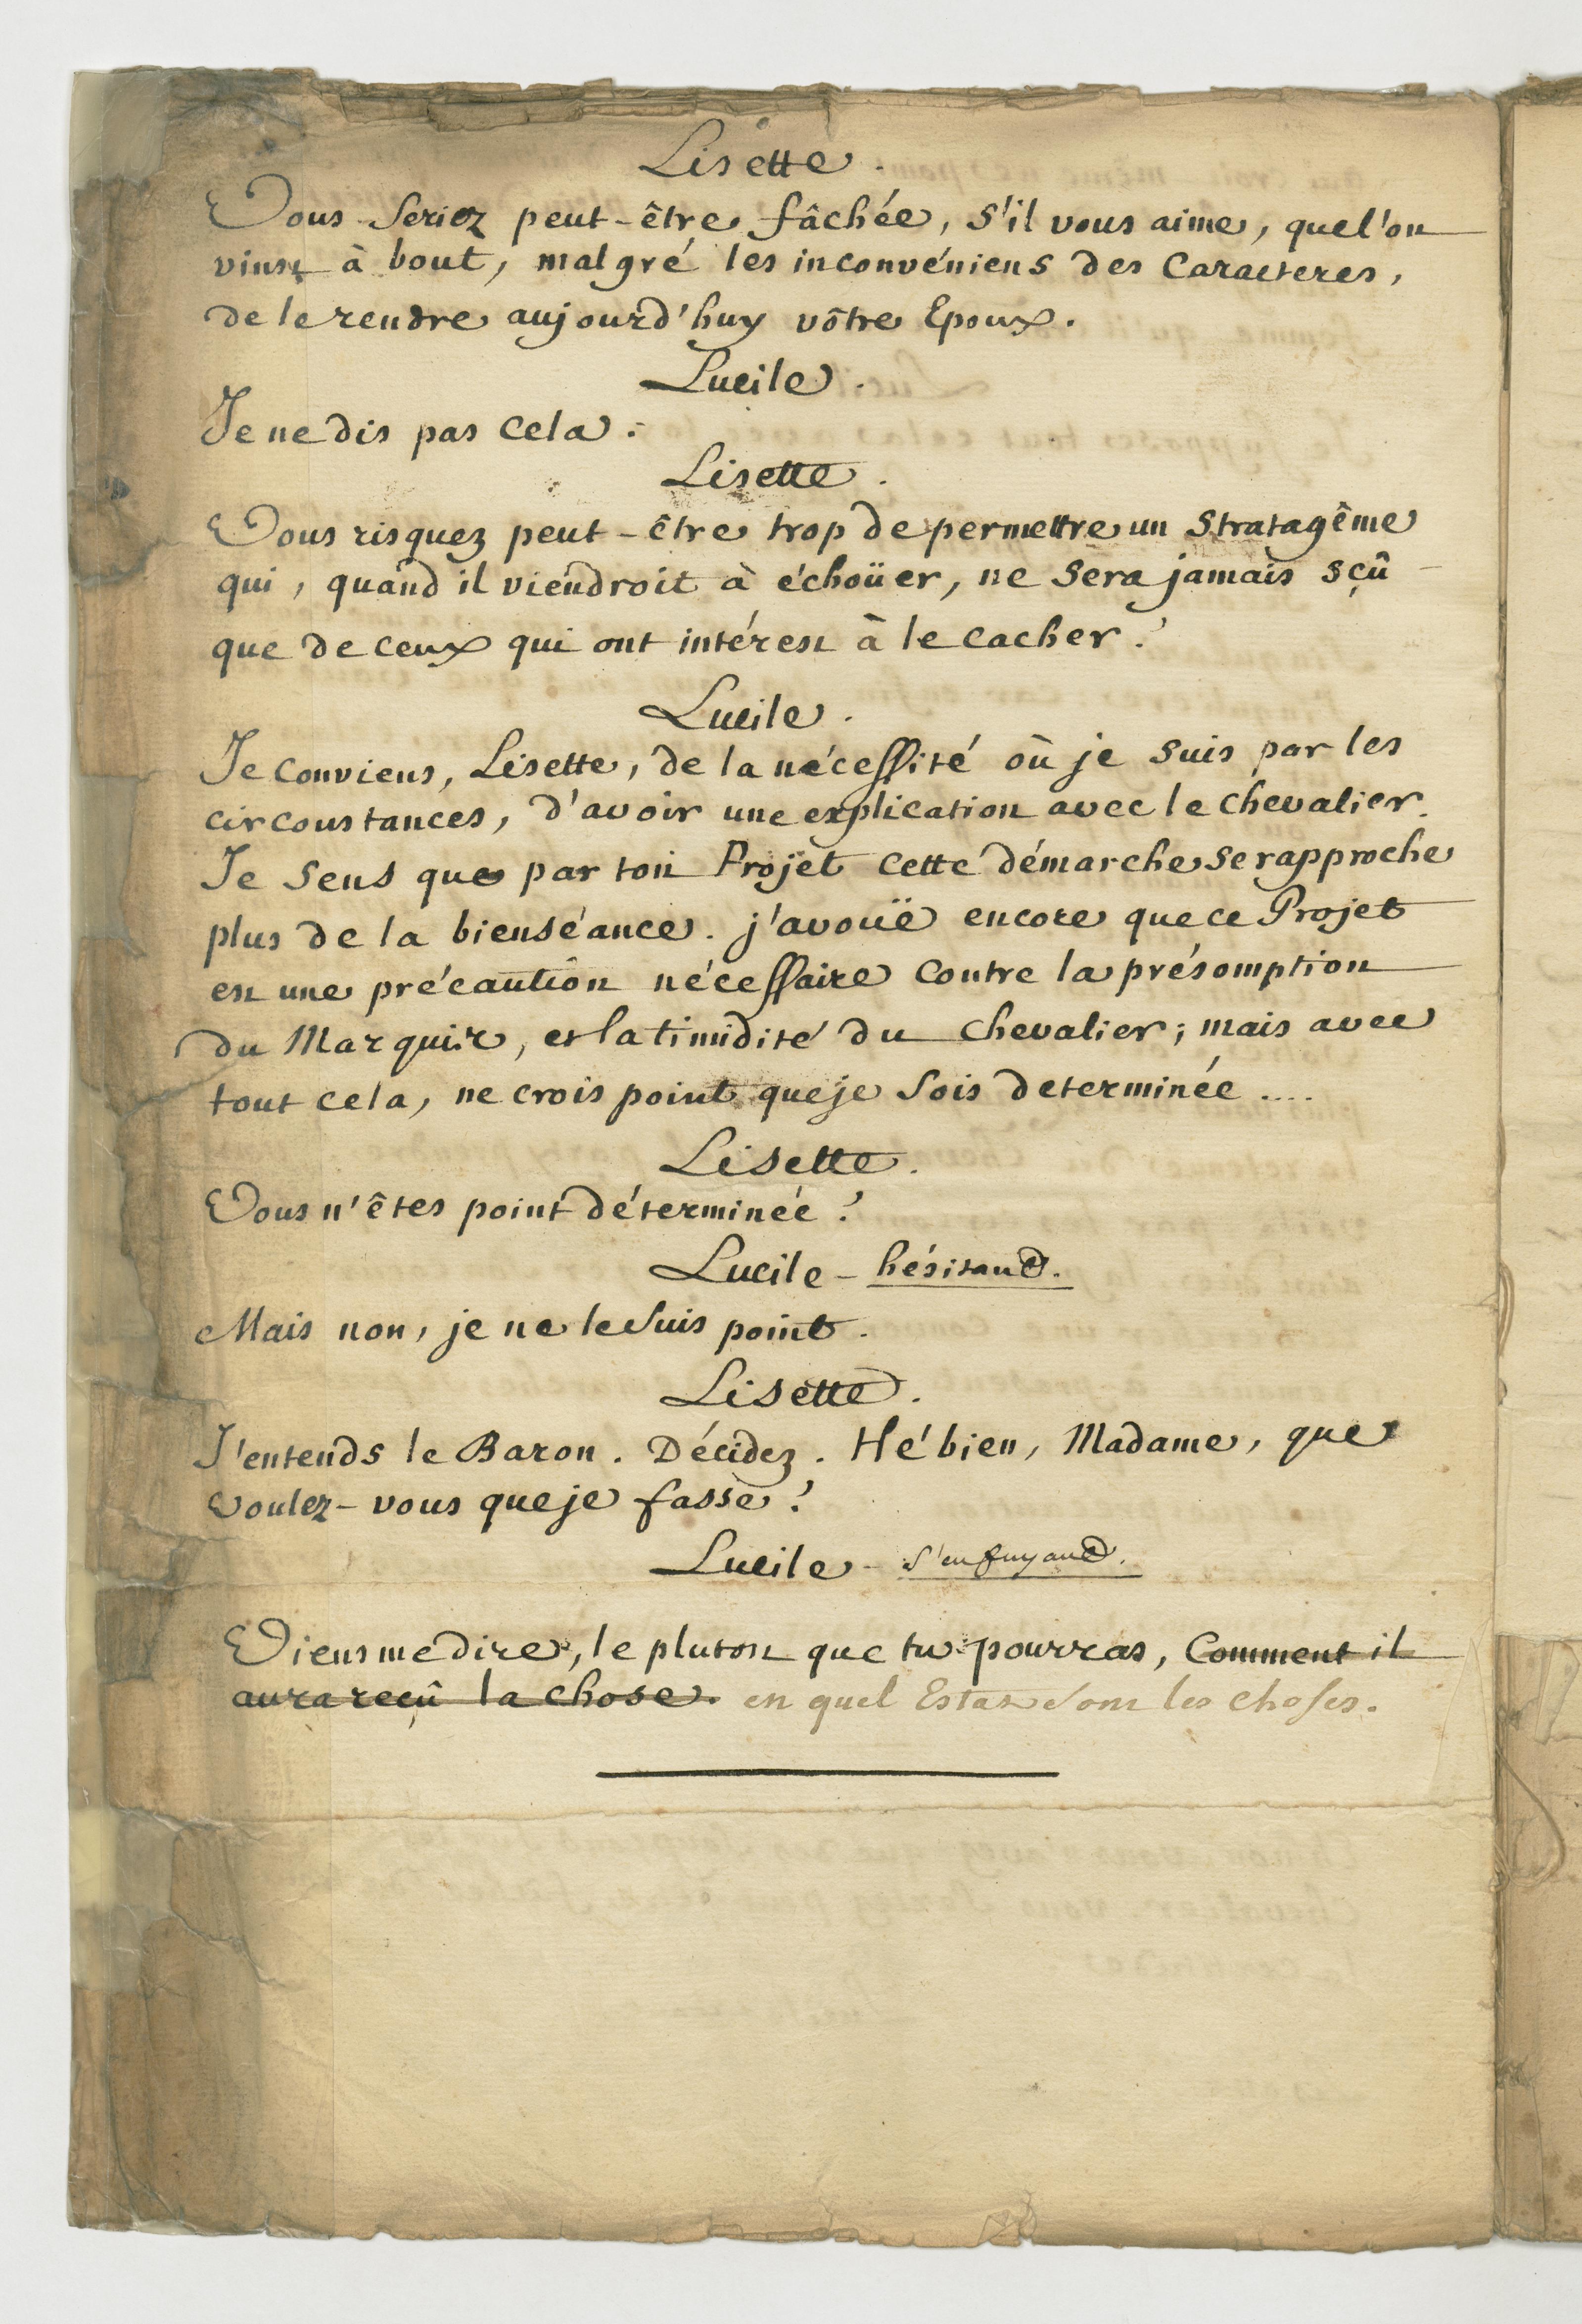 Lisette.
Vous seriez peut-être fâchée, s'il vous aime, que l'on
vinst à bout, malgré les inconvéniens des Caracteres,
de le rendre aujourd'huy vôtre Epoux.
Lucile.
Je ne dis pas cela.
Lisette.
Vous risquez peut-être trop de permettre un Stratagême
qui, quand il viendroit à échoüer, ne sera jamais sçû
que de ceux qui ont intérest à le cacher?
Lucile.
Je conviens, Lisette, de la nécessité où je suis par les
circonstances, d'avoir une explication avec le chevalier.
Je sens que par ton Projet cette démarche se rapproche
plus de la bienséance. j'avoüe encore que ce Projet
est une précaution nécessaire contre la présomption
du Marquis, et la timidité du Chevalier; mais avec
tout cela, ne crois point que je sois determinée ....
Lisette.
Vous n'êtes point déterminée?
Lucile - hésitant.
Mais non, je ne le suis point.
Lisette.
J'entends le Baron. Décidez. Hé bien, Madame, que
voulez-vous que je fasse?
Lucile - s'enfuyant.
Viens me dire, le plutost que tu pourras, Comment il
aura reçû la chose. en quel Estat sont les choses.